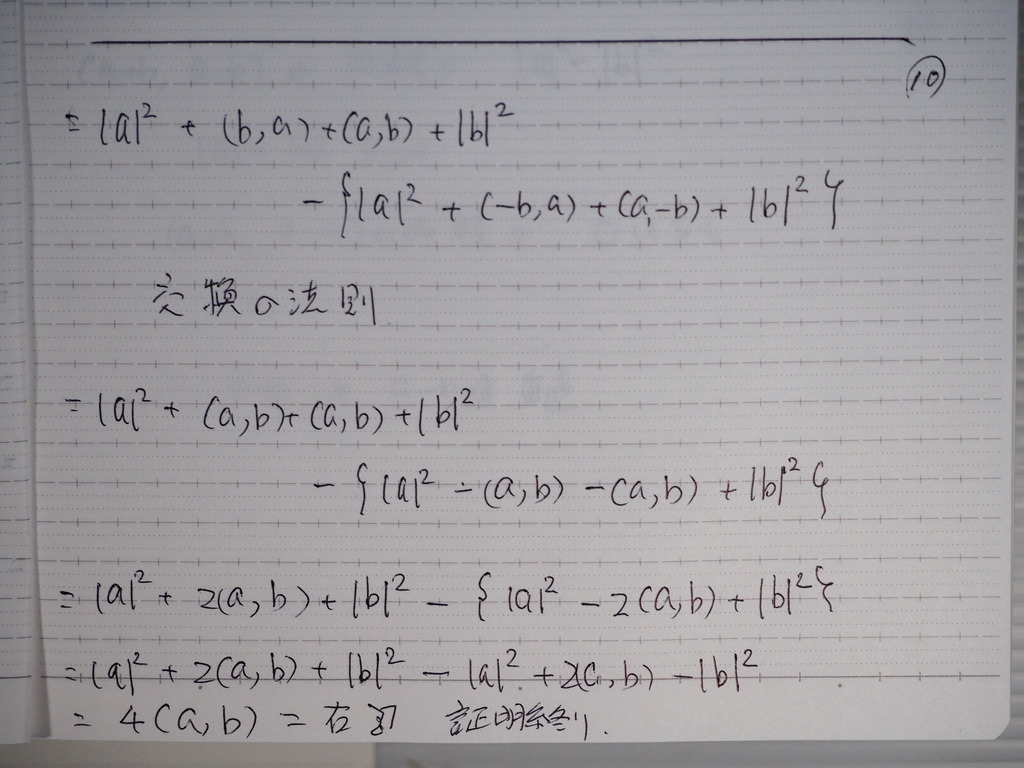 ⑩
= |a|² + (b,a) + (a,b) + |b|²
- {|a|² + (-b,a) + (a,-b) + |b|²}
交換の法則
= |a|² + (a,b) + (a,b) + |b|²
- {|a|² - (a,b) - (a,b) + |b|²}
= |a|² + 2(a,b) + |b|² - {|a|² - 2(a,b) + |b|²}
= |a|² + 2(a,b) + |b|² - |a|² + 2(a,b) - |b|²
= 4(a,b) = 右辺 証明終り.